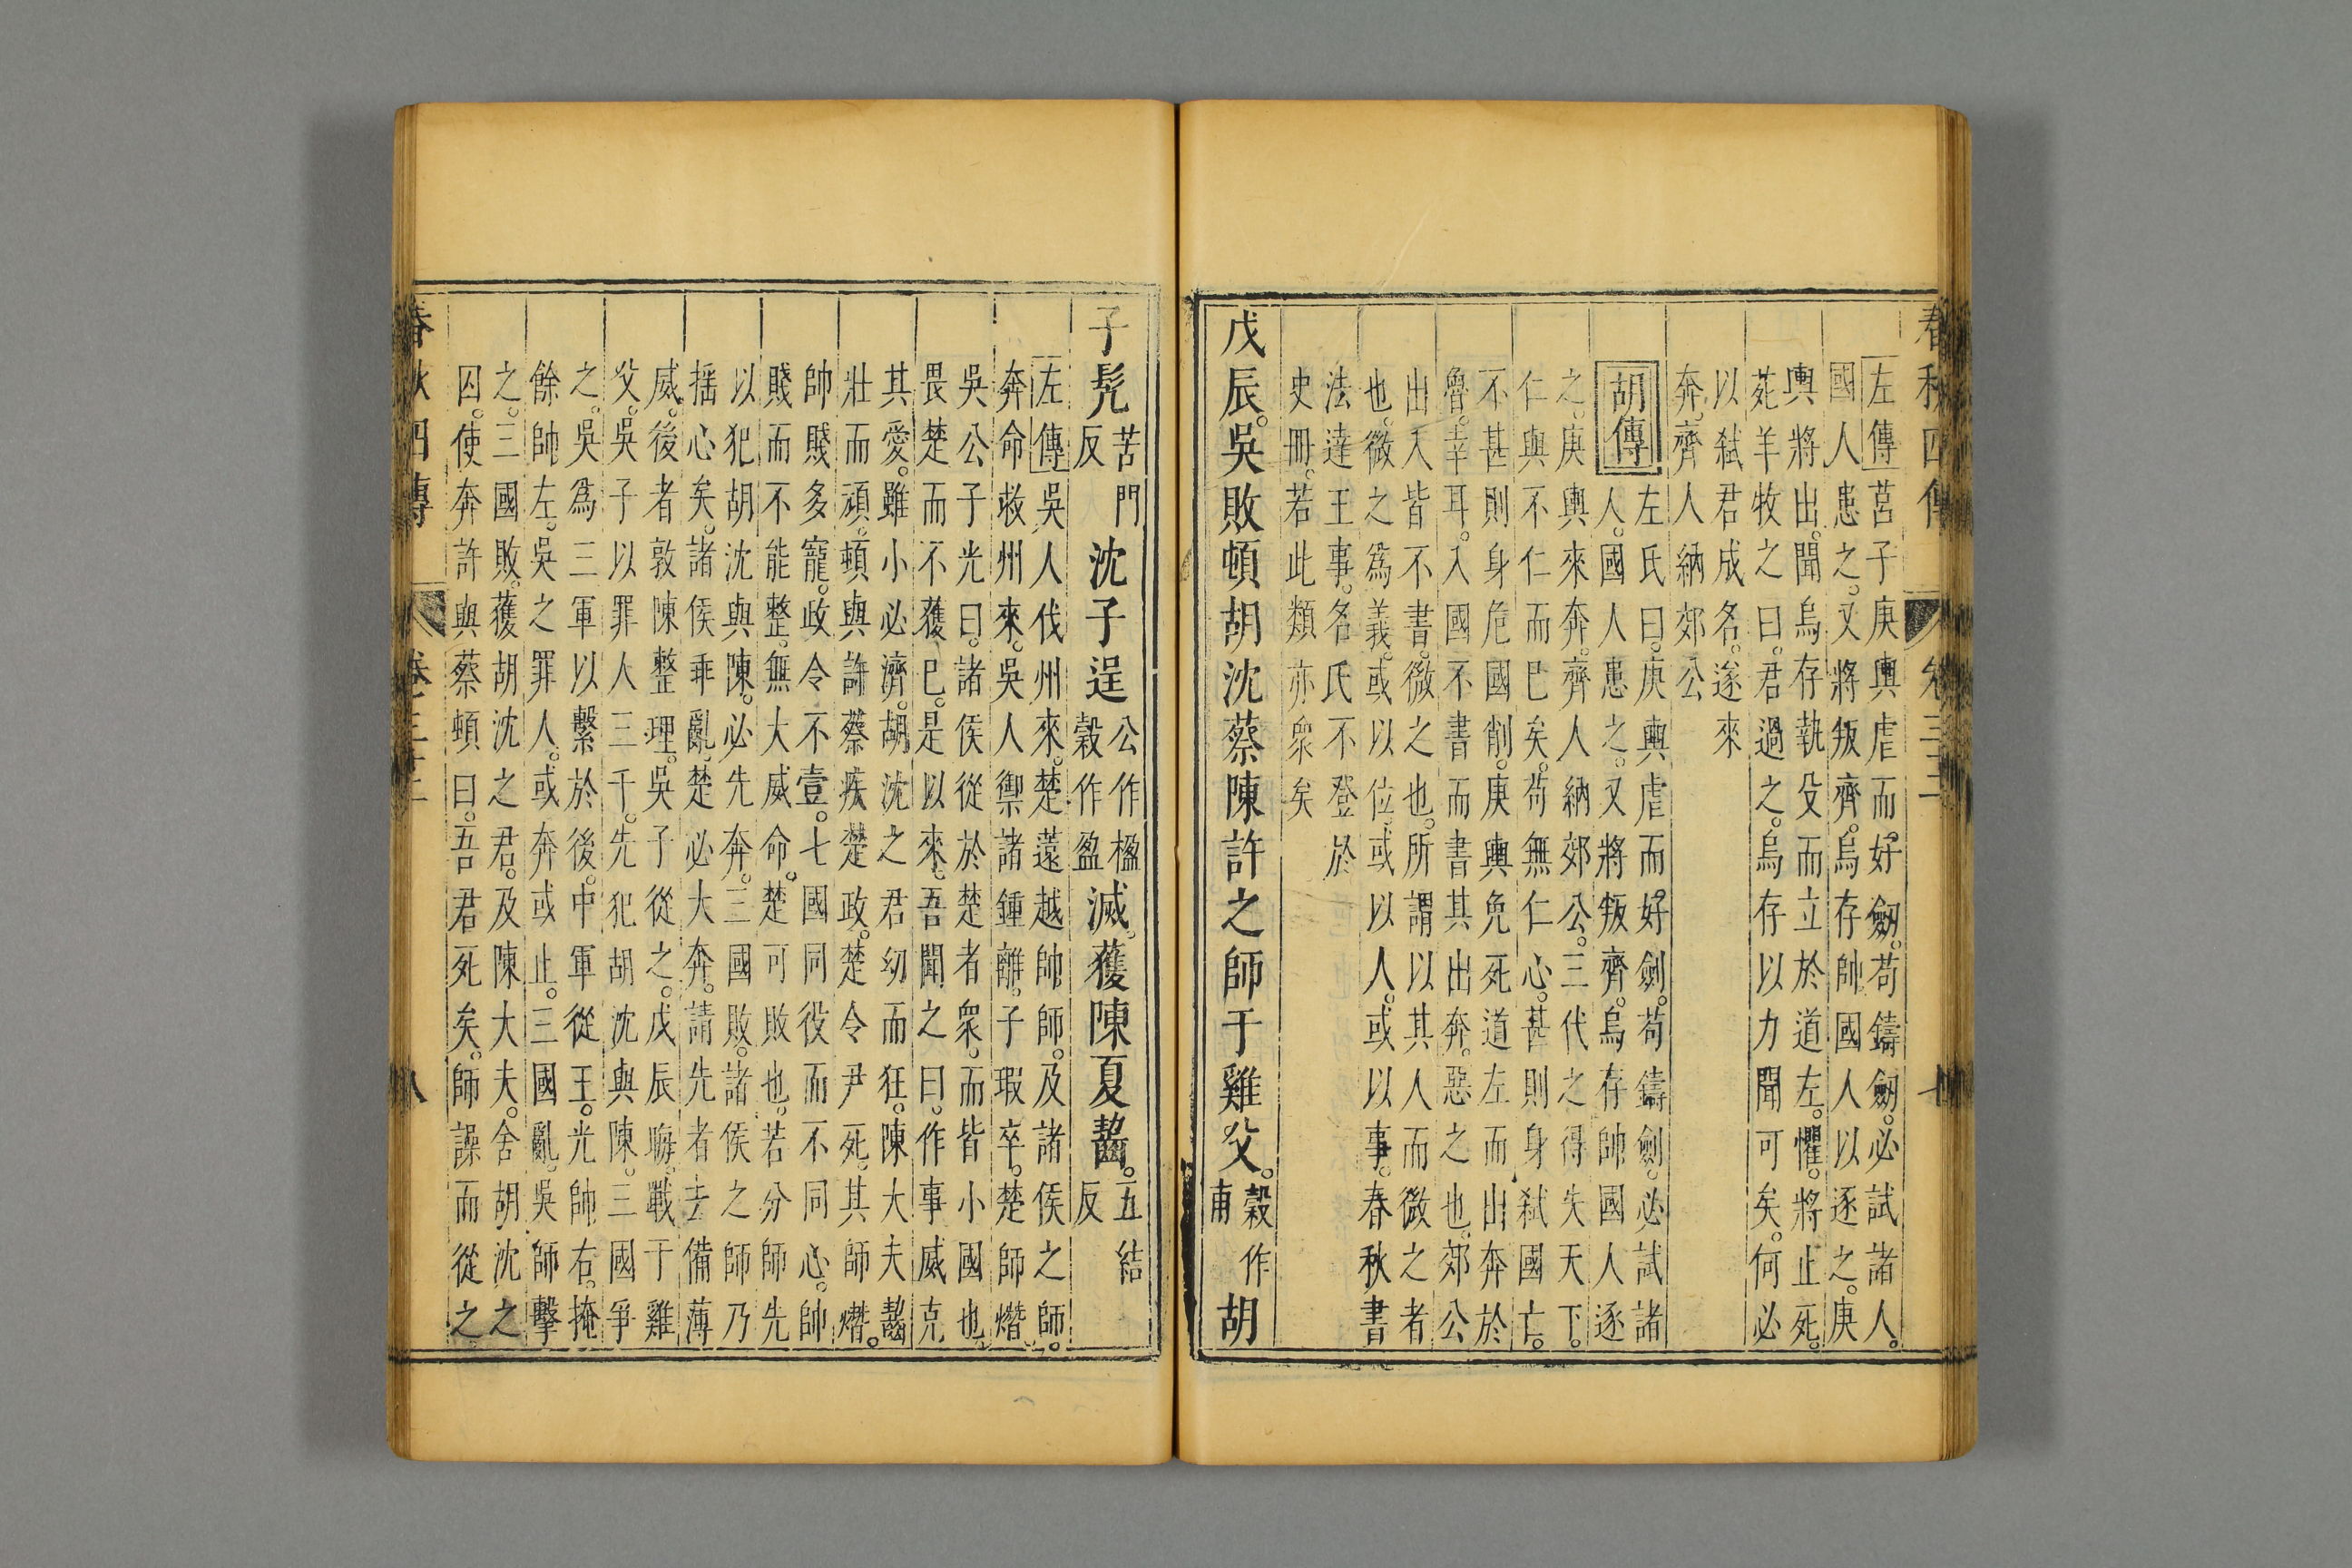 春秋四傳 卷三十二 七
左傳莒子庚輿虐而好劒。苟鑄劒。必試諸人。
國人患之。又將叛齊。烏存帥國人以逐之。庚
輿將出。聞烏存執殳而立於道左。懼。將止死。
苑羊牧之曰。君過之。烏存以力聞可矣。何必
以弑君成名。遂來
奔。齊人納郊公
胡傳
左氏曰。庚輿虐而好劍。苟鑄劍。必試諸
人。國人患之。又將叛齊。烏存帥國人逐
之。庚輿來奔。齊人納郊公。三代之得失天下。
仁與不仁而巳矣。苟無仁心。甚則身弑國亡。
不甚則身危國削。庚輿免死道左而出奔於
魯。幸耳。入國不書而書其出奔。惡之也。郊公
出入皆不書。微之也。所謂以其人而微之者
也。微之爲義。或以位。或以人。或以事。春秋書
法達王事。名氏不登於
史冊。若此類亦衆矣
戊辰。吳敗頓胡沈蔡陳許之師于雞父。榖作甫胡
子髠苦門反沈子逞公作楹榖作盈滅。獲陳夏齧。五結反
左傳吳人伐州來。楚薳越帥師。及諸侯之師。
奔命救州來。吳人禦諸鍾離。子瑕卒。楚師熸。
吳公子光曰。諸侯從於楚者衆。而皆小國也。
畏楚而不獲巳。是以來。吾聞之曰。作事威克
其愛。雖小必濟。胡沈之君幼而狂。陳大夫齧
壯而頑。頓與許蔡疾楚政。楚令尹死。其師熸。
帥賤多寵。政令不壹。七國同役而不同心。帥
賤而不能整。無大威命。楚可敗也。若分師先
以犯胡沈與陳。必先奔。三國敗。諸侯之師乃
揺心矣。諸侯乖亂。楚必大奔。請先者去備薄
威。後者敦陳整理。吳子從之。戊辰晦。戰于雞
父。吳子以罪人三千。先犯胡沈與陳。三國爭
之。吳爲三軍以繫於後。中軍從王。光帥右。掩
餘帥左。吳之罪人。或奔或止。三國亂。吳師擊
之。三國敗。獲胡沈之君。及陳大夫。舍胡沈之
囚。使奔許與蔡頓曰。吾君死矣。師譟而從之。
春秋四傳 卷三十二 八